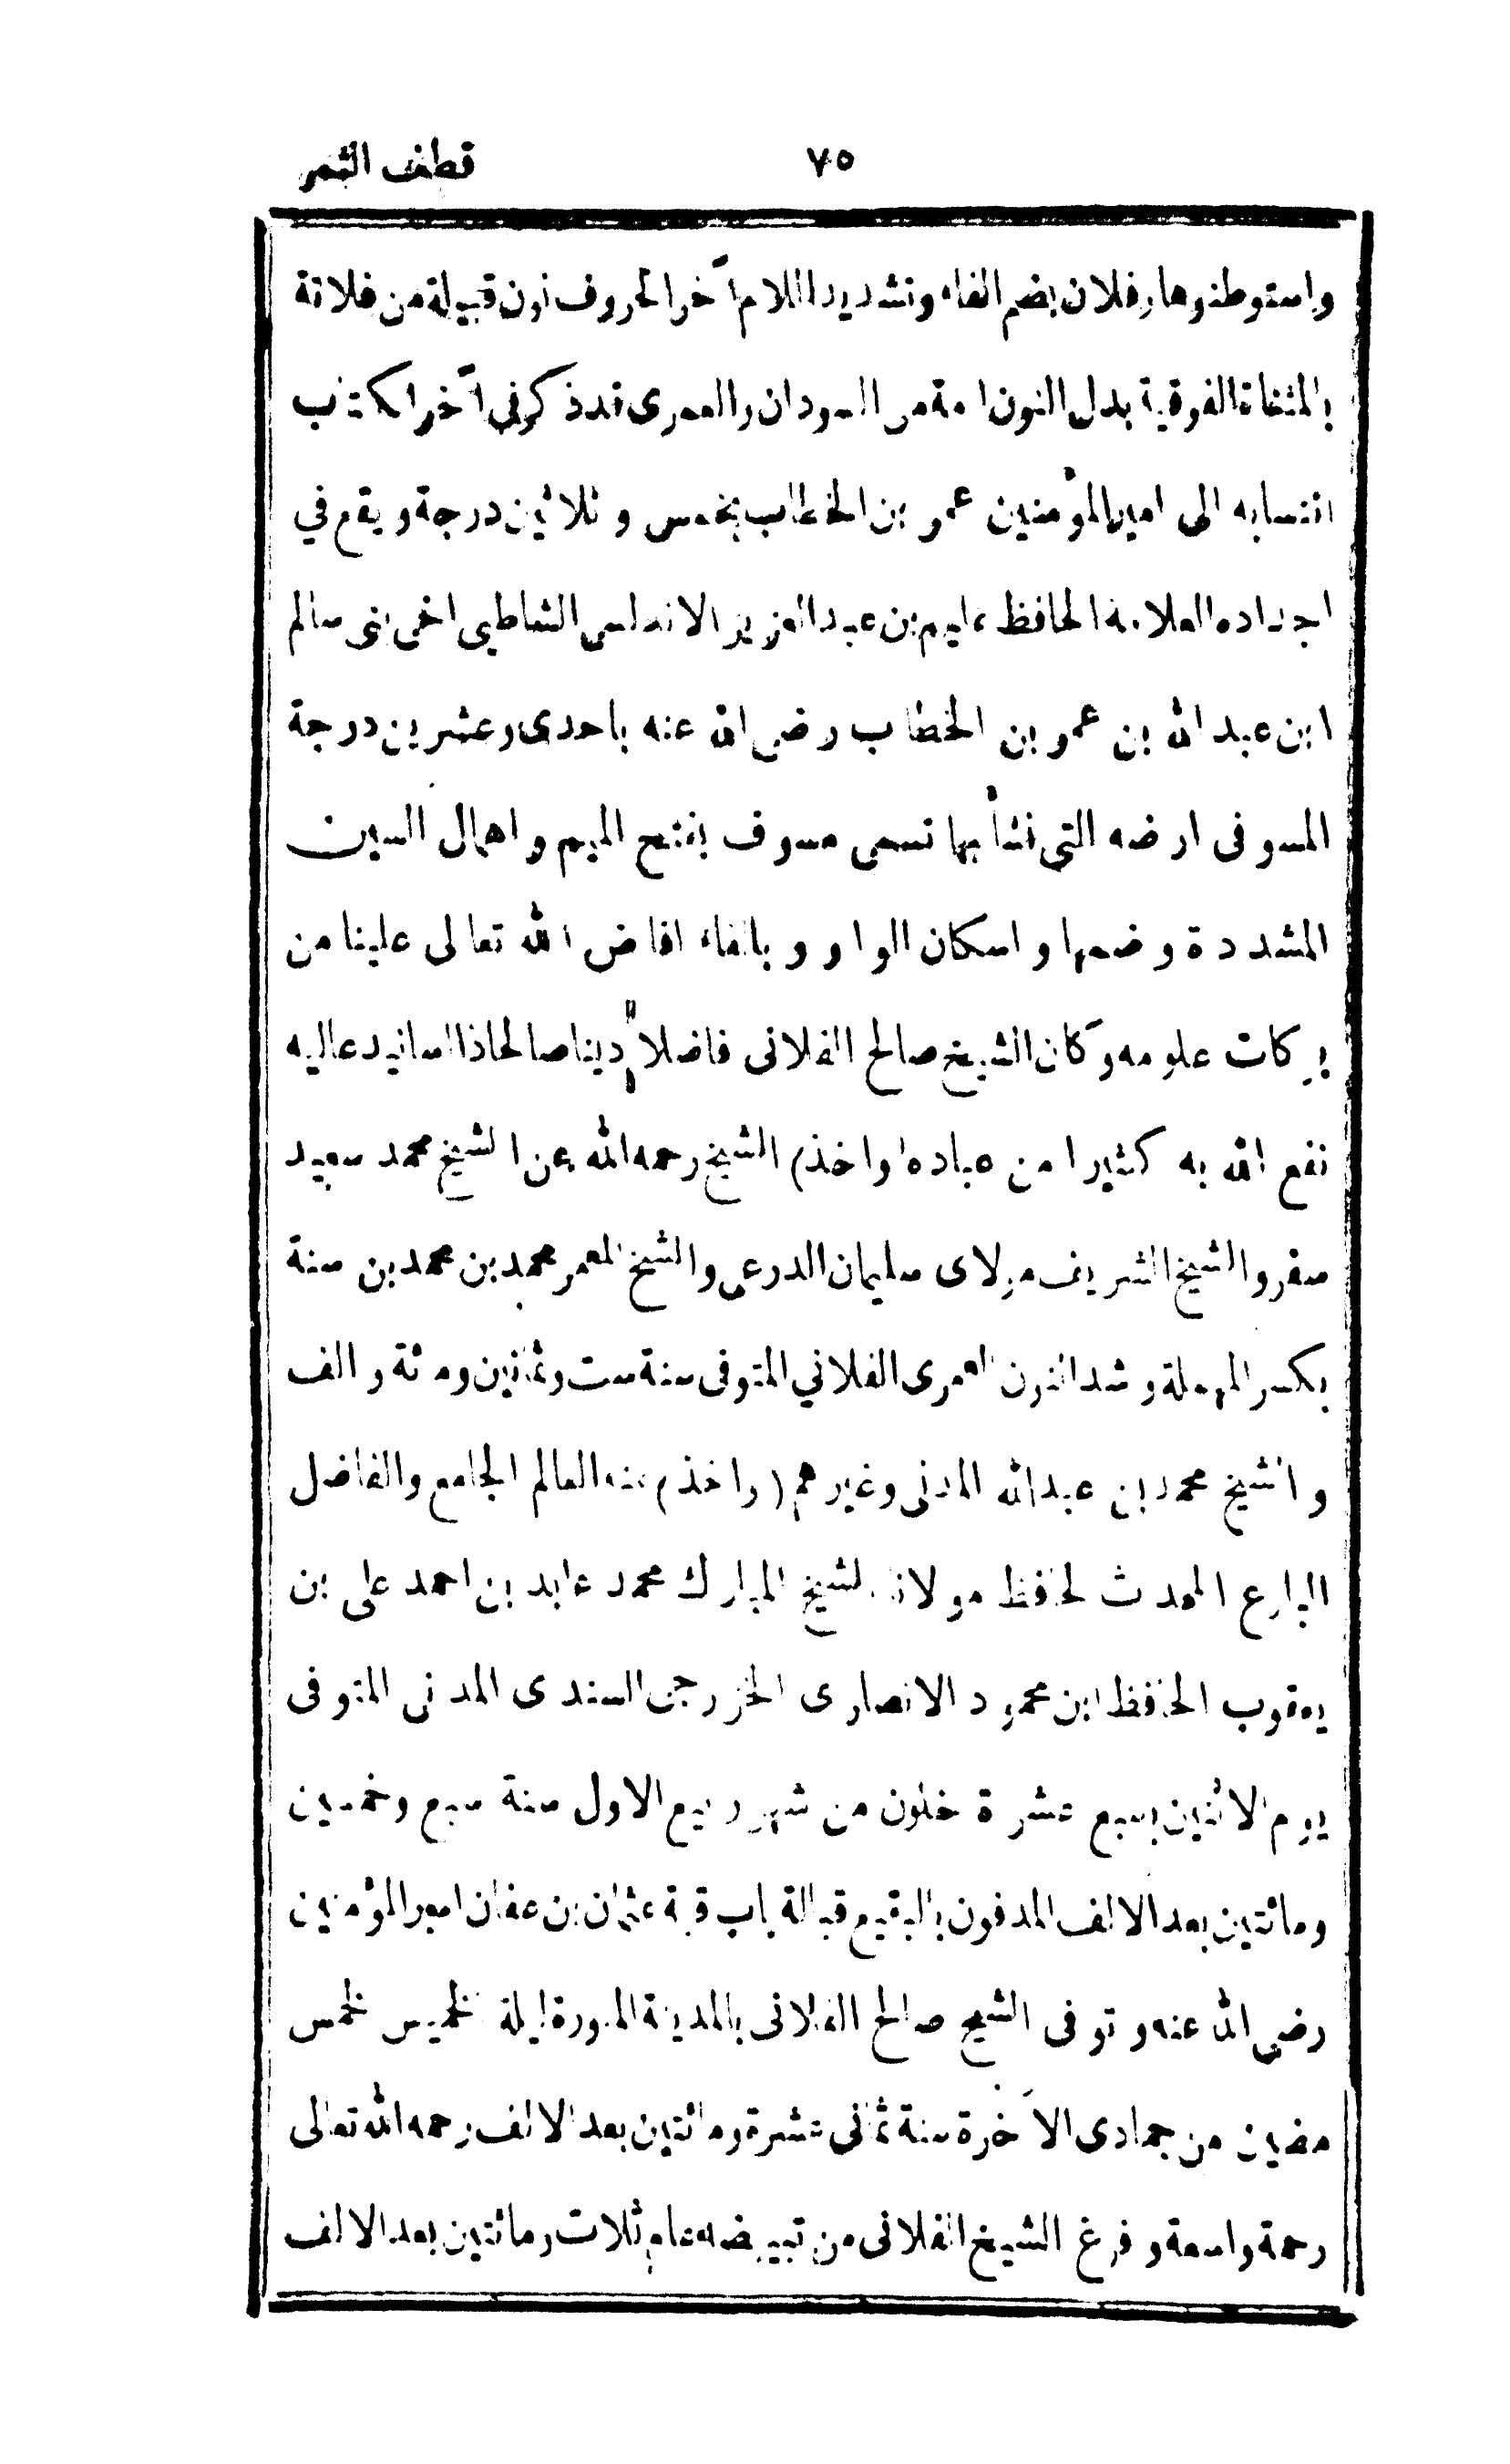 قطف الثمر ٧٥
واستوطنوها وفلان بضم الفاء وتشديد اللام آخر الحروف نون قبيلة من فلاتة
بالمثناة الفوقية بدل النون امة من السودان والعمرى قد ذكر في آخر الكتاب
انتسابه الى امير المؤمنين عمر بن الخطاب بخمس و ثلاثين درجة ويقع في
اجداده العلامة الحافظ عليم بن عبد العزيز الاندلسى الشاطبى اخى بنى سالم
ابن عبد الله بن عمر بن الخطاب رضى الله عنه باحدى وعشرين درجة
المسوفى ارضه التى نشأ بها تسمى مسوف بفتح الميم و اهمال السين
المشددة و ضمها و اسكان الواو و بالفاء افاض الله تعالى علينا من
بركات علومه وكان الشيخ صالح الفلانى فاضلاً دينا صالحا ذا اسانيد عاليه
نفع الله به كثيرا من عباده (واخذ) الشيخ رحمه الله عن الشيخ محمد سعيد
سفر والشيخ الشريف مولاى سليمان الدرعى والشيخ المعمر محمد بن محمد بن سنة
بكسر المهملة و شد النون العمرى الفلاني المتوفى سنة ست وثمانين ومائة و الف
و الشيخ محمد بن عبد الله المدنى وغيرهم (واخذ) عنه العالم الجامع والفاضل
البارع المحدث الحافظ مولانا الشيخ المبارك محمد عابد بن احمد على بن
يعقوب الحافظ ابن محمود الانصارى الخزرجى السندى المدنى المتوفى
يوم الاثنين بسبع عشرة خلون من شهر ربيع الاول سنة سبع وخمسين
ومائتين بعد الالف المدفون بالبقيع قبالة باب قبة عثمان بن عفان امير المؤمنين
رضى الله عنه و توفى الشيخ صالح الفلانى بالمدينة المنورة ليلة الخميس لخمس
مضين من جمادى الآخرة سنة ثمانى عشرة ومائتين بعد الالف رحمه الله تعالى
رحمة واسعة و فرغ الشيخ الفلانى من تبييضه عام ثلاث ومائتين بعد الالف